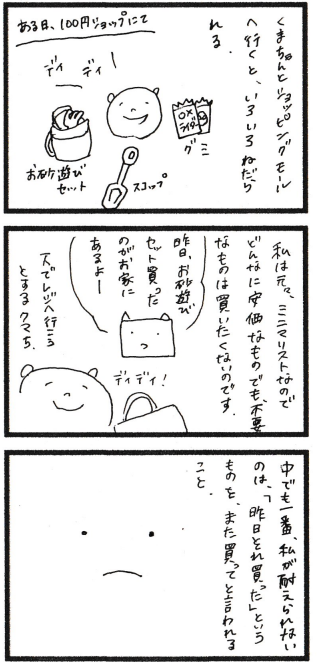 くまちゃんとショッピングモール
へ行くと、いろいろねだら
れる。
ある日、100円ショップにて
ディ
ディ
お砂遊び
セット
スコップ
グミ
私は元々、ミニマリストなので
どんなに安価なものでも、不要
なものは買いたくないのです。
昨日、お砂遊び
セット買った
のがお家に
あるよー
一人でレジへ行こう
とするクマち。
ディディ!
中でも一番、私が耐えられない
のは、「昨日それ買った」という
ものを、また買ってと言われる
こと。